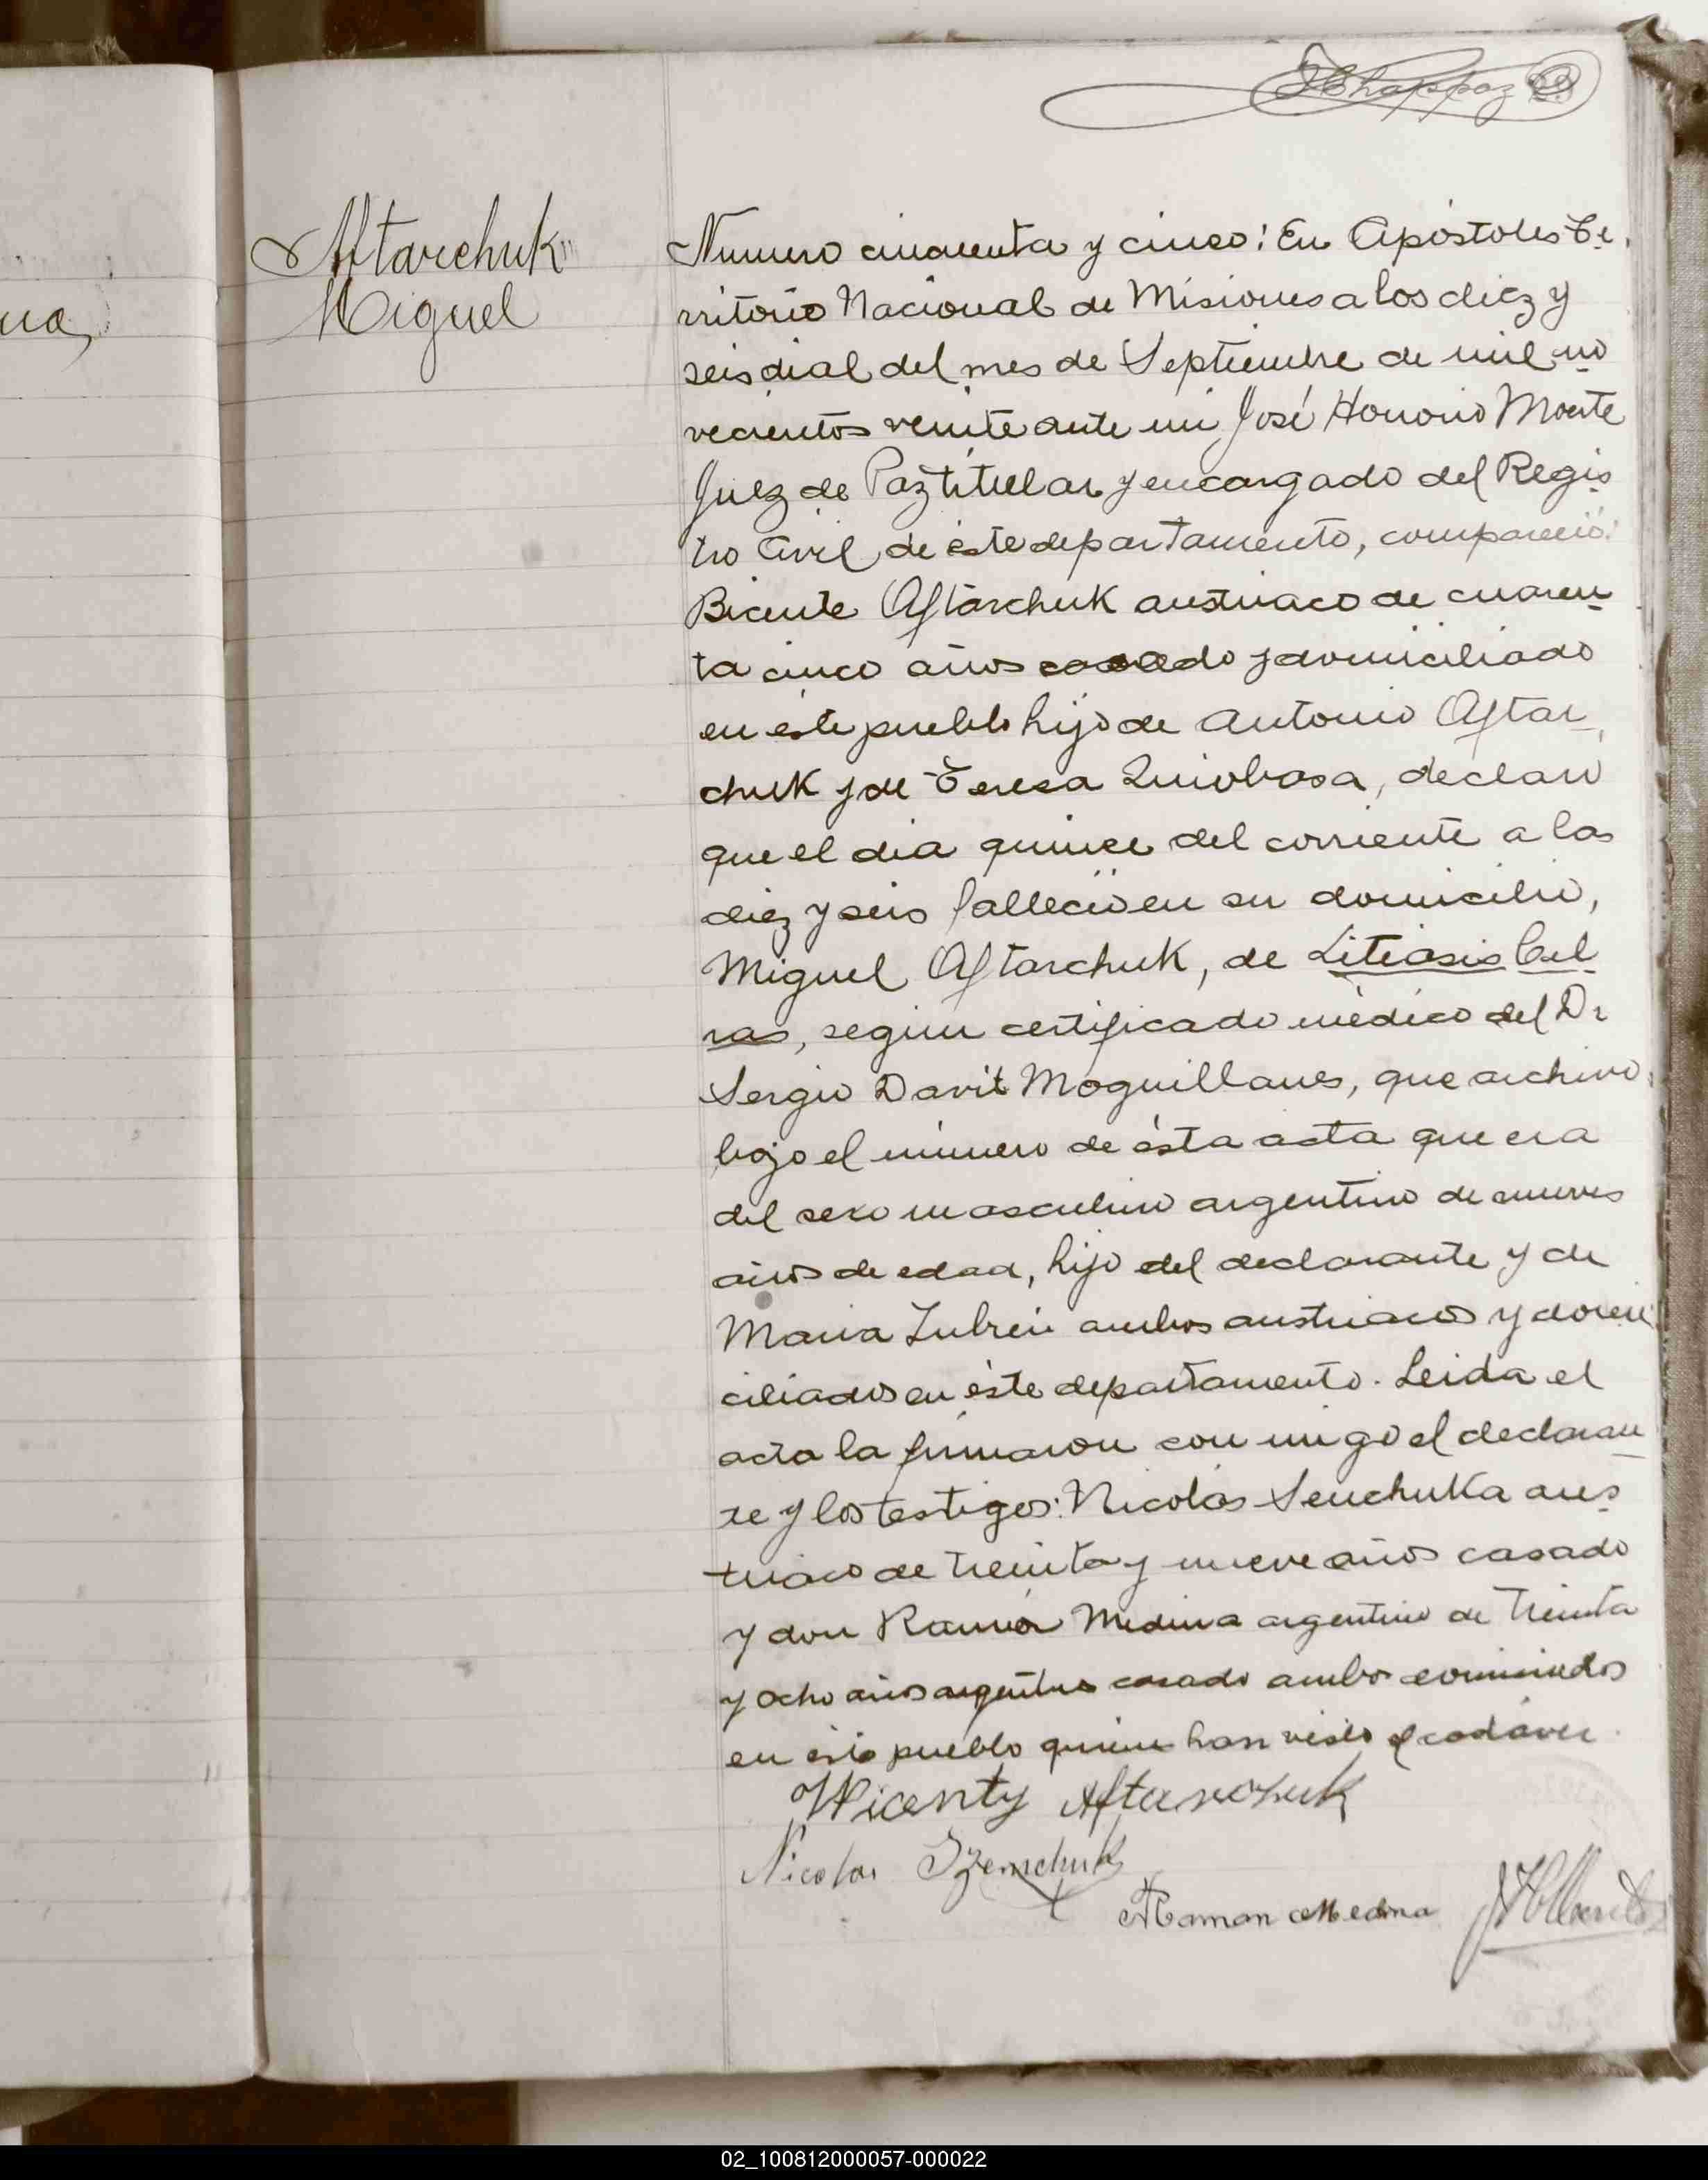 Chappoz
ua,
Aftarchuk
Miguel
Numero cincuenta y cinco: En Apóstoles Te-
rritorio Nacional de Misiones a los diez y
seis dial del mes de Septiembre de mil no
vecientos veinte ante mi José Honorio Monte
Juez de Paz titular y encargado del Regis
tro Civil de éste departamento, compareció:
Bicente Aftarchuk austriaco de cuaren
ta cinco años casado y domiciliado
en éste pueblo hijo de Antonio Aftar-
chuk y de Teresa Quiobasa, declaró
que el dia quince del corriente a las
diez y seis falleció en su domicilio,
Miguel Aftarchuk, de Litiasis
, segun certificado médico del Dr
Sergio Davit Moguillanes, que archivo
bajo el número de ésta acta que era
del sexo masculino argentino de nueves
años de edad, hijo del declarante y de
Maria Zubreu ambos austriacos y domi
ciliados en éste departamento. Leida el
acta la firmaron con migo el declaran
te y los testigos: Nicolás Senchuka aus
triaco de treinta y nueve años casado
y don Ramón Medina argentino de treinta
y ocho años argentino casado ambos domiciliados
en este pueblo quienes han visto el cadáver
Wicenty Aftarchuk
Nicolas Szemchuk
Raman Medina
02_100812000057-000022